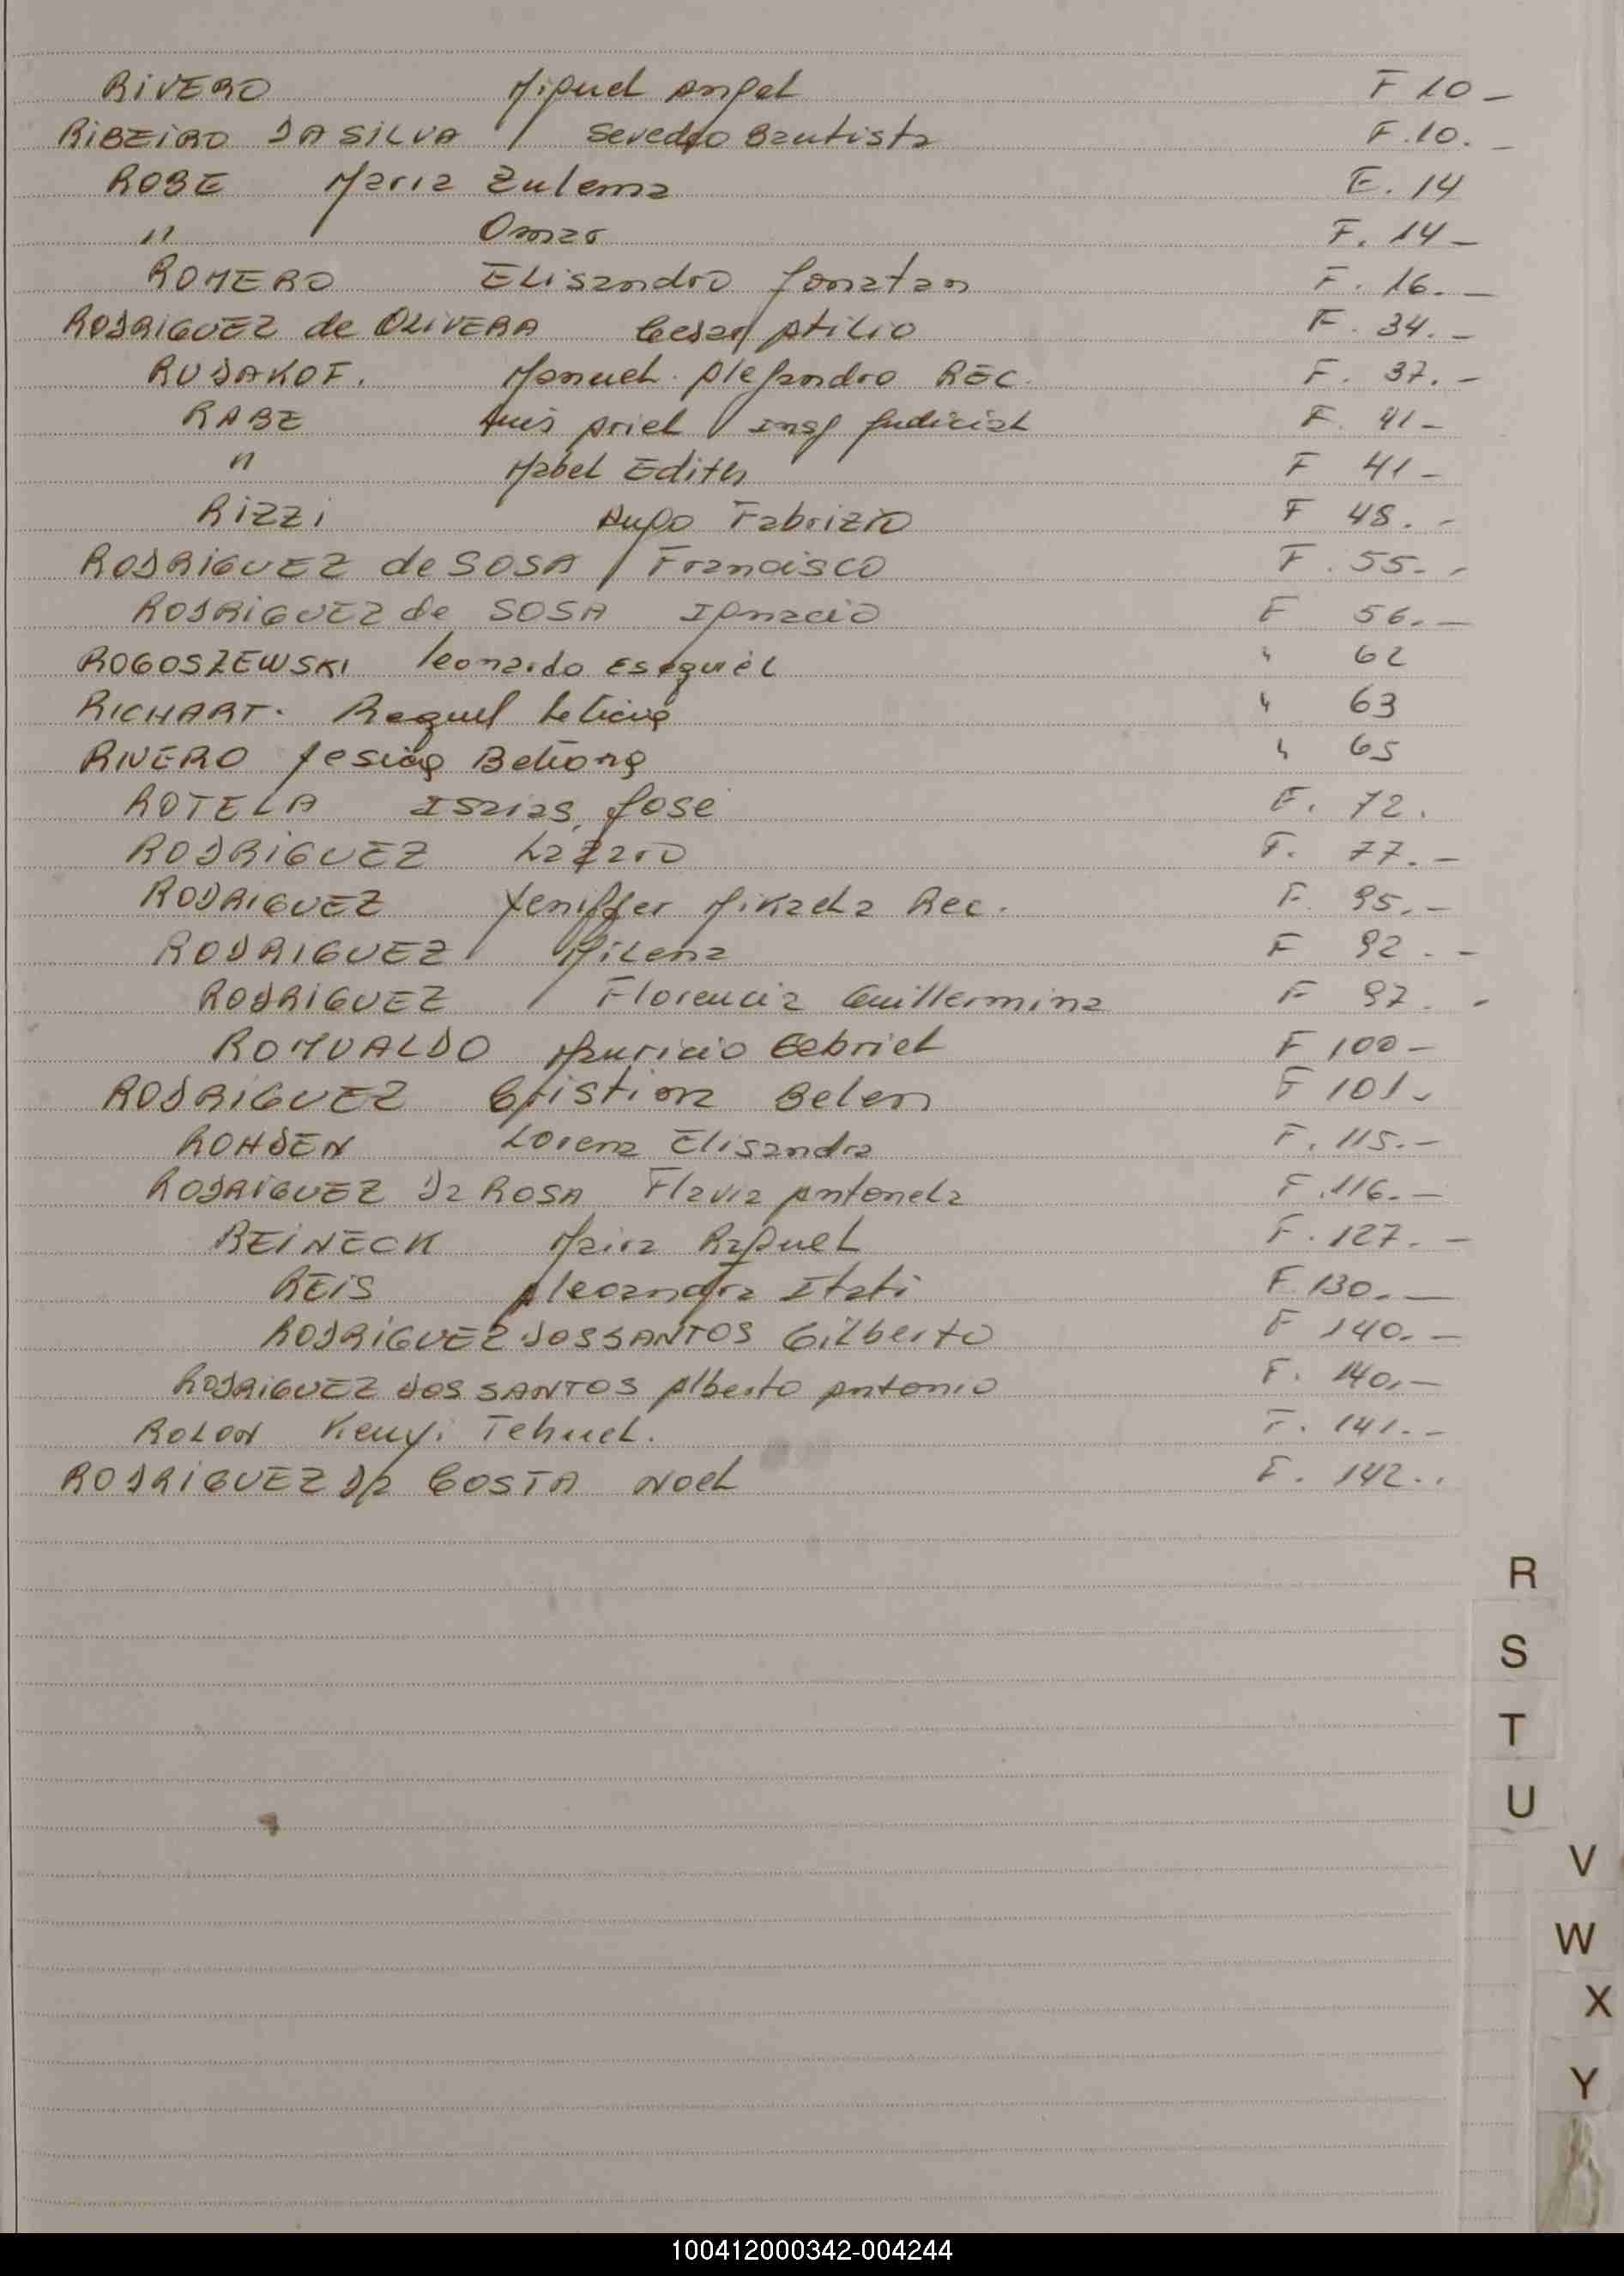 RIVERO Miguel Angel F 10 -
RIBEIRO DA SILVA Severo Bautista F. 10. -
ROBE Maria Zulema F. 14
" Omar F. 14 -
ROMERO Elisandro Jonatan F. 16. -
RODRIGUEZ de OLIVERA Cesar Atilio F. 34. -
RUDAKOF. Manuel Alejandro REC. F. 37. -
RABE Luis Ariel Insc Judicial F. 41 -
" Mabel Edith F 41 -
RIZZI Hugo Fabrizio F 48. -
RODRIGUEZ de SOSA Francisco F. 55. -
RODRIGUEZ de SOSA Ignacio F 56. -
ROGOSZEWSKI Leonardo Esequiel " 62
RICHART. Raquel Leticia " 63
RIVERO Jesica Betiana " 65
ROTELA Isaias José F. 72.
RODRIGUEZ Lazaro F. 77. -
RODRIGUEZ Yeniffer Micaela Rec. F. 95. -
RODRIGUEZ Milena F 92. -
RODRIGUEZ Florencia Guillermina F 97. -
ROMUALDO Mauricio Gabriel F 100 -
RODRIGUEZ Cristian Belen F 101 -
ROHDEN Lorena Elisandra F. 115. -
RODRIGUEZ Da ROSA Flavia Antonela F. 116. -
REINECK Maira Raquel F. 127. -
REIS Aleoandra Itati F. 130. -
RODRIGUEZ DOS SANTOS Gilberto F 140. -
RODRIGUEZ DOS SANTOS Alberto Antonio F. 140. -
ROLON Kenyi Tehuel. F. 141. -
RODRIGUEZ Da COSTA Noel F. 142. .
R
S
T
U
V
W
X
Y
100412000342-004244